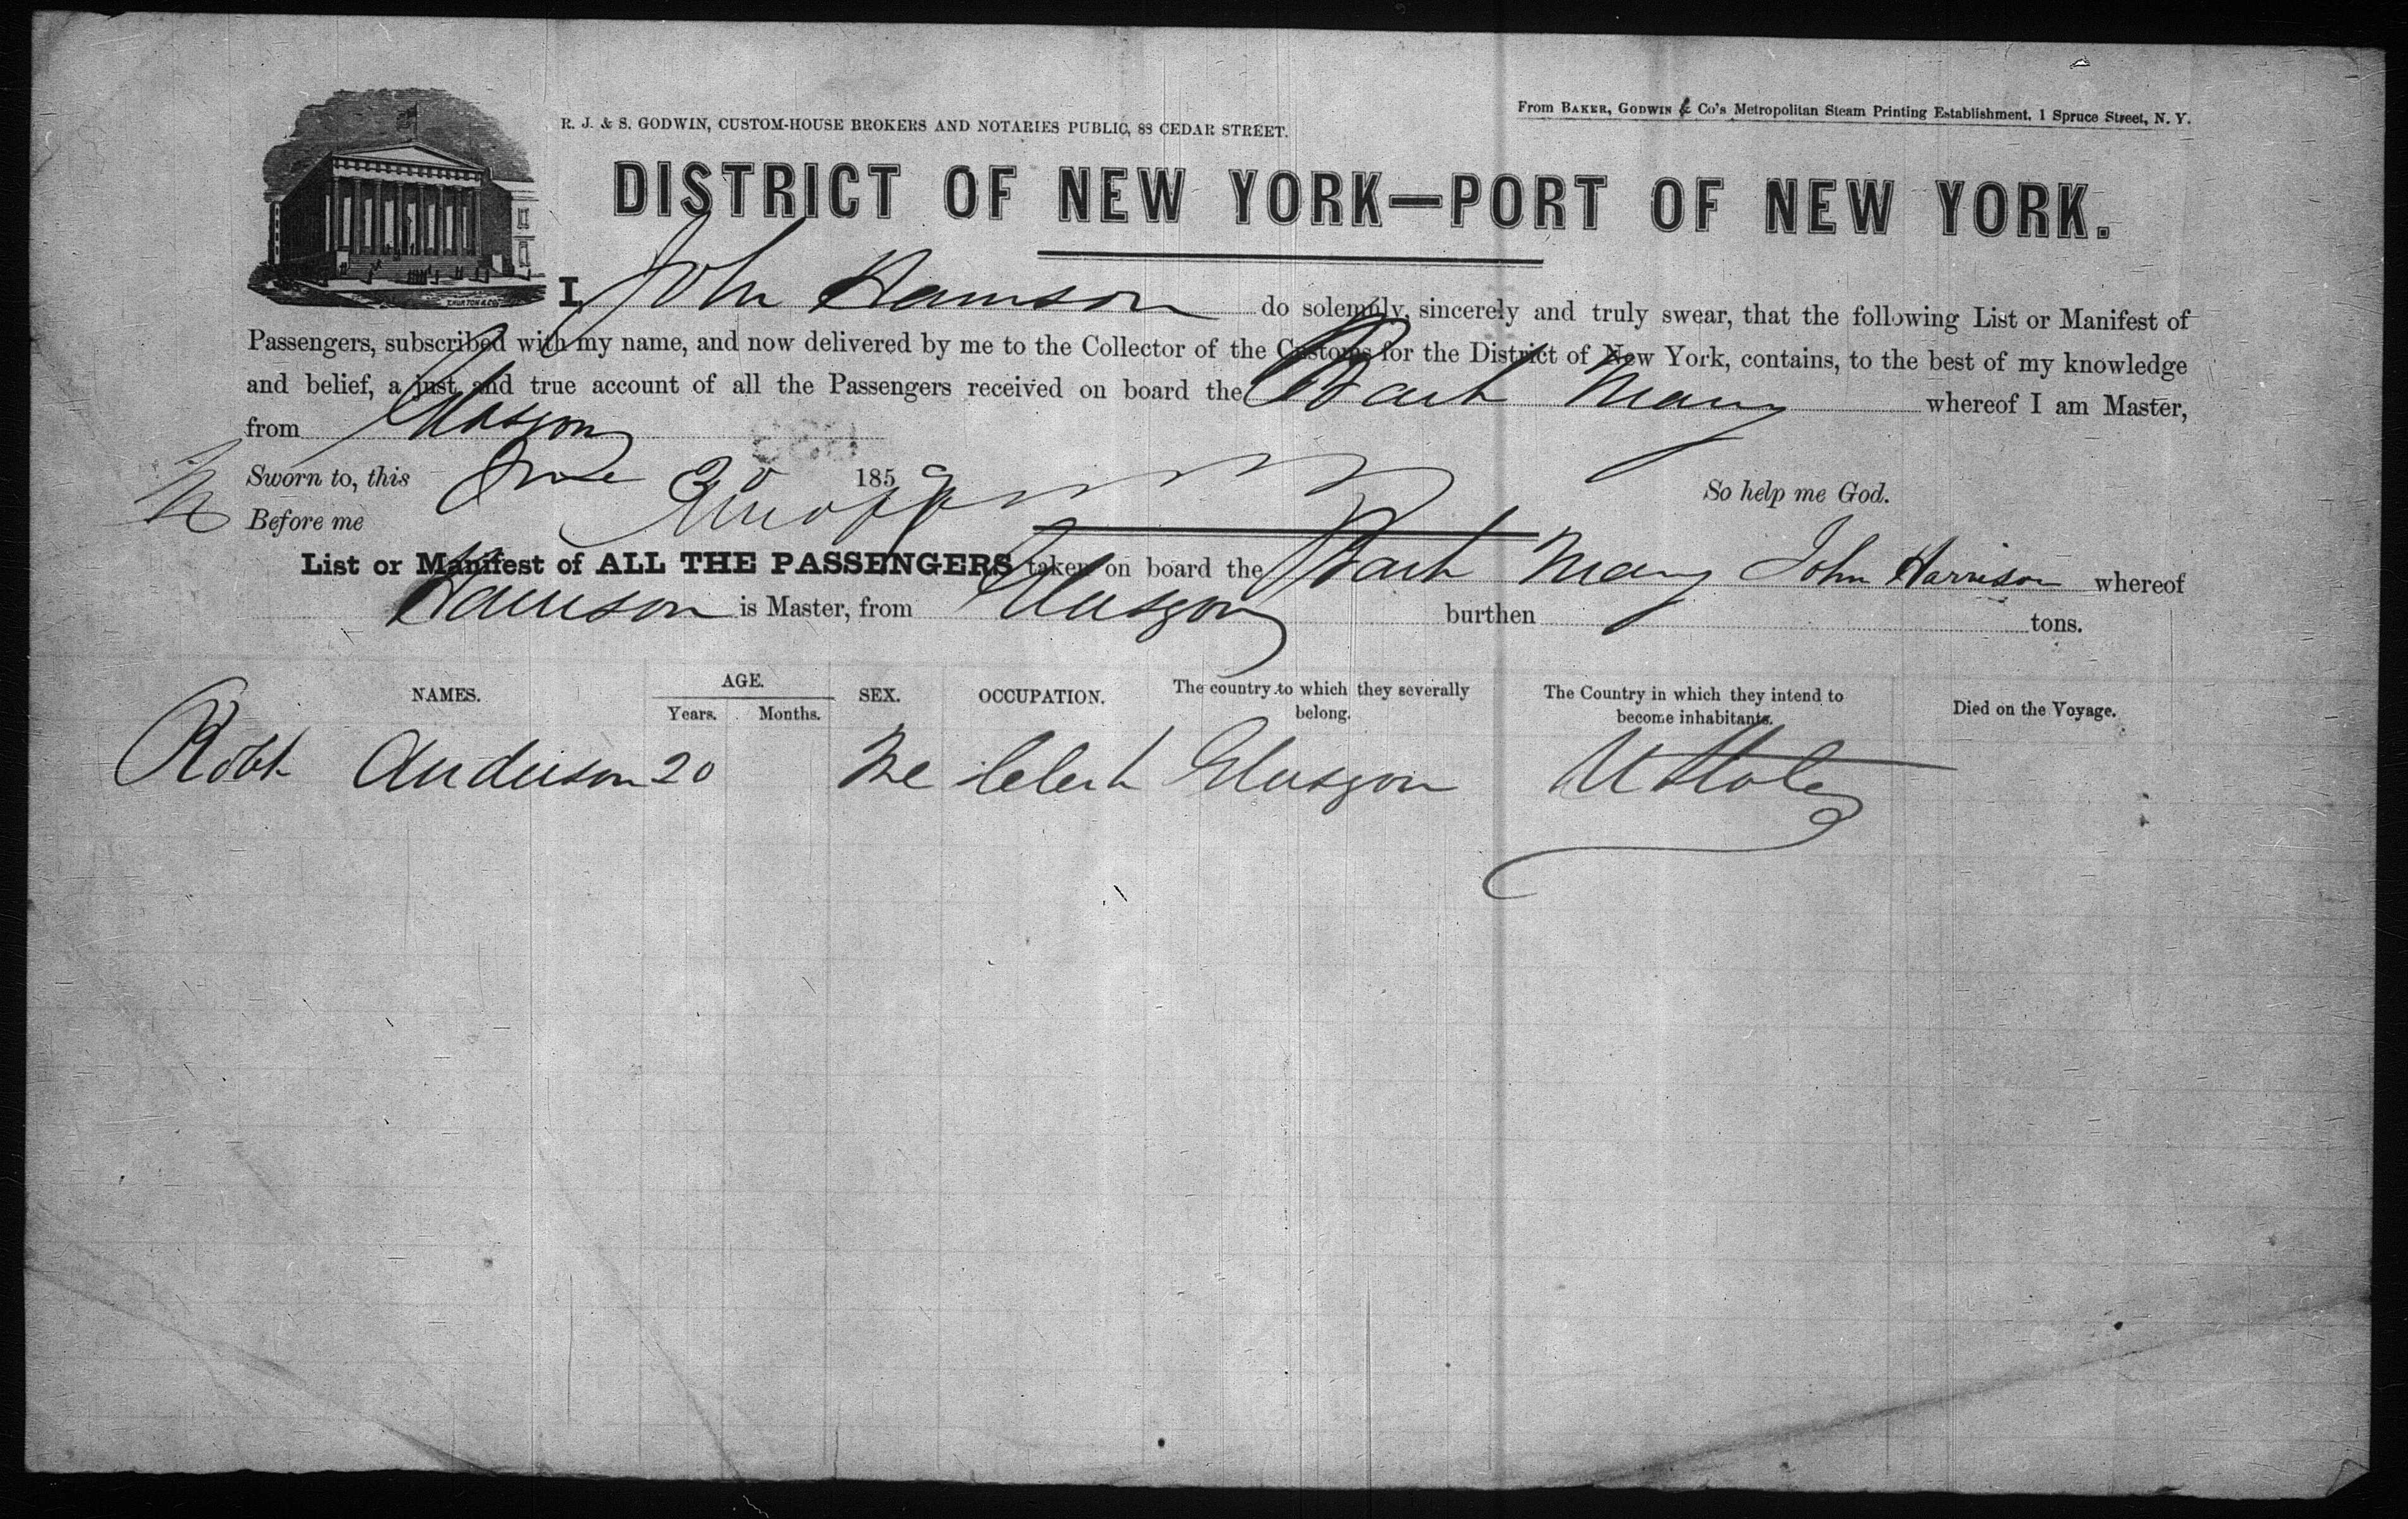 R. J. & S. GODWIN, CUSTOM-HOUSE BROKERS AND NOTARIES PUBLIC, 88 CEDAR STREET.
From BAKER, GODWIN & Co's Metropolitan Steam Printing Establishment, 1 Spruce Street, N. Y.
DISTRICT OF NEW YORK—PORT OF NEW YORK.
I, John Harrison do solemnly, sincerely and truly swear, that the following List or Manifest of
Passengers, subscribed with my name, and now delivered by me to the Collector of the Customs for the District of New York, contains, to the best of my knowledge
and belief, a just and true account of all the Passengers received on board the Bark Mary whereof I am Master,
from Glasgow
Sworn to, this June 30 1859
So help me God.
Before me
List or Manifest of ALL THE PASSENGERS taken on board the Bark Mary John Harrison whereof
Harrison is Master, from Glasgow burthen tons.
NAMES. AGE. SEX. OCCUPATION. The country to which they severally belong. The Country in which they intend to become inhabitants. Died on the Voyage.
Years. Months.
Robt Anderson 20 Me Clerk Glasgow U States